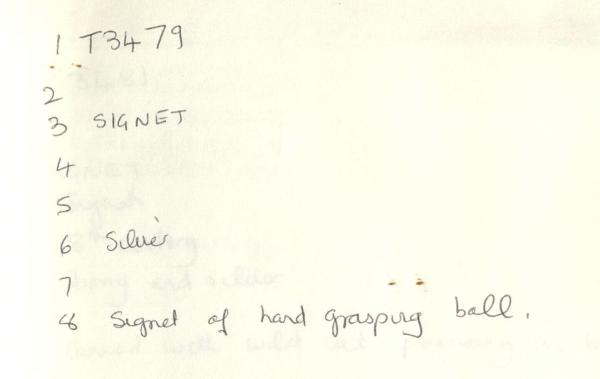 1 T3479
2
3 SIGNET
4
5
6 Silver
7
8 Signet of hand grasping ball.